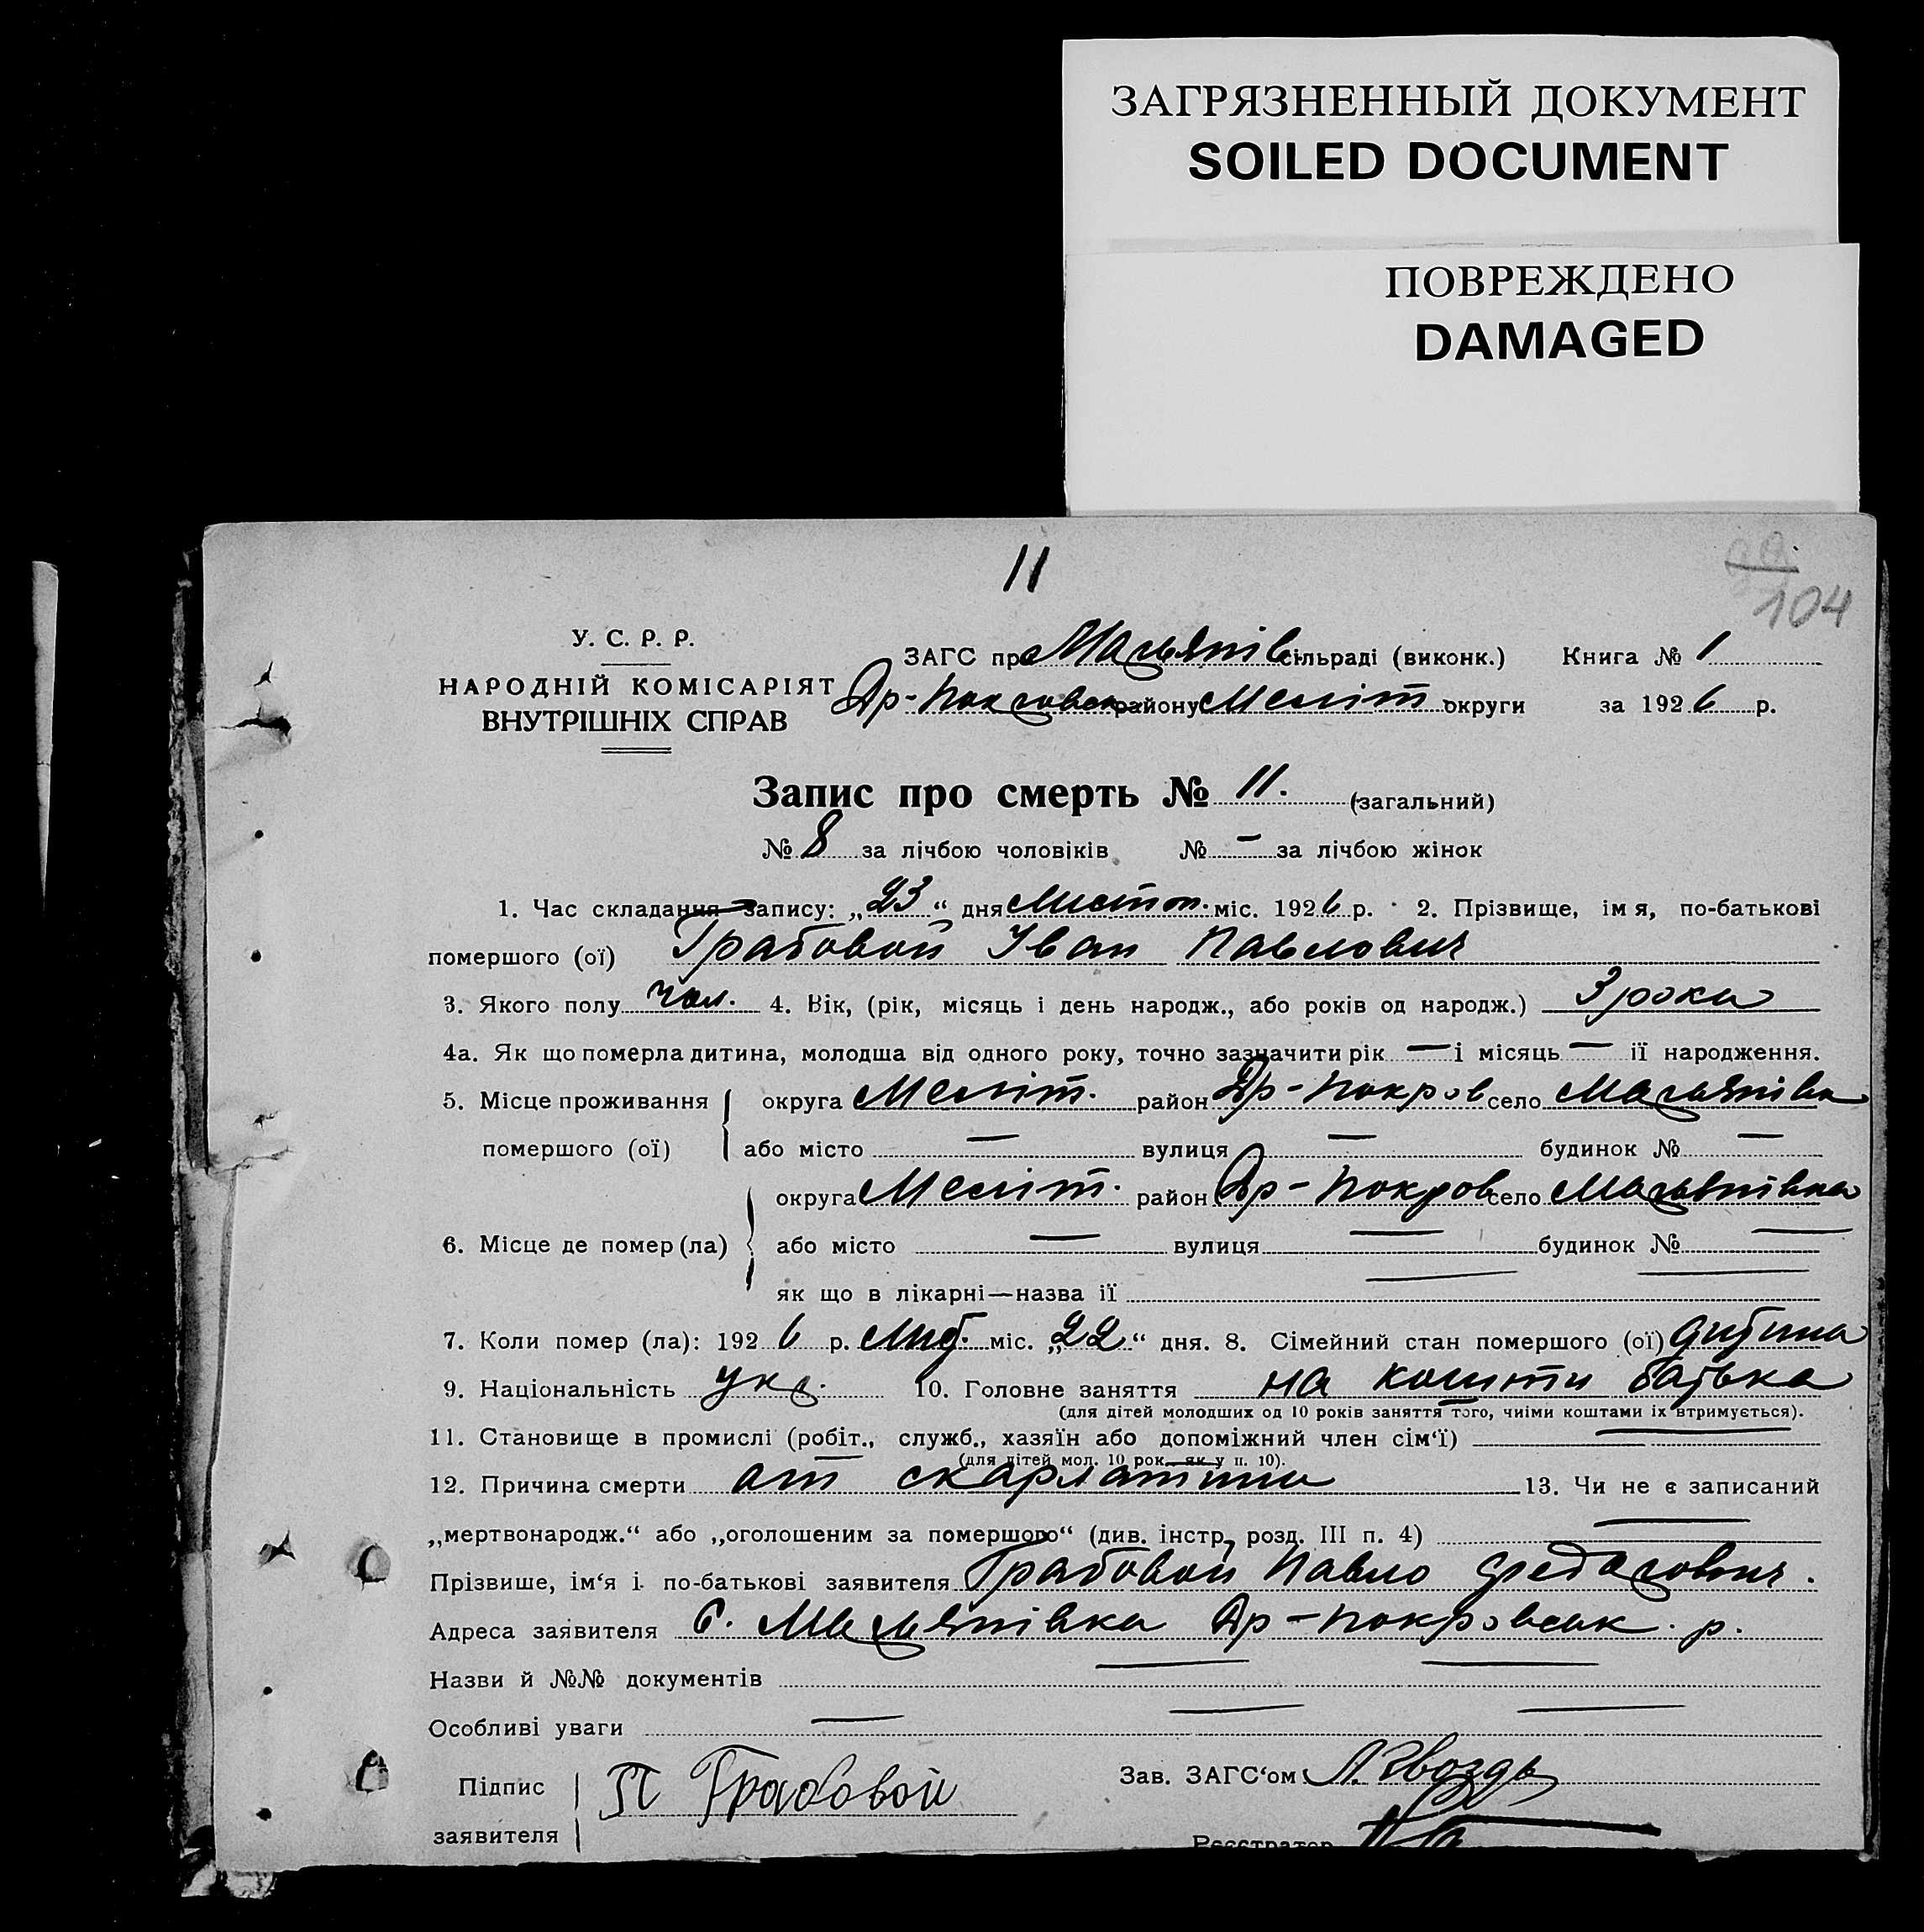 ЗАГРЯЗНЕННЫЙ ДОКУМЕНТ
SOILED DOCUMENT
ПОВРЕЖДЕНО
DAMAGED
11
104
У. С. Р. Р.
НАРОДНІЙ КОМІСАРІЯТ
ВНУТРІШНІХ СПРАВ
ЗАГС при сільраді (виконк.) Книга № 1
Др-Покровськ району Меліт округи за 1926 р.
Запис про смерть № 11. (загальний)
№ 8 за лічбою чоловіків № – за лічбою жінок
1. Час складання запису: „23“ дня Листоп. міс. 1926 р. 2. Прізвище, імя, по-батькові
помершого (ої) Грабовой Іван Павлович
3. Якого полу чол. 4. Вік, (рік, місяць і день народж., або років од народж.) 3 роки
4а. Як що померла дитина, молодша від одного року, точно зазначити рік — і місяць — її народження.
5. Місце проживання округа Меліт. район Др-Покров село
помершого (ої) або місто — вулиця — будинок № —
округа Меліт. район Др-Покров село
6. Місце де помер (ла) або місто — вулиця — будинок № —
як що в лікарні—назва її —
7. Коли помер (ла): 1926 р. міс. „22“ дня. 8. Сімейний стан помершого (ої) дитина
9. Національність укр. 10. Головне заняття на кошти батька
(для дітей молодших од 10 років заняття того, чиїми коштами їх втримується).
11. Становище в промислі (робіт., служб., хазяїн або допоміжний член сім‘ї) —
(для дітей мол. 10 рок. як у п. 10).
12. Причина смерти от скарлатини 13. Чи не є записаний
„мертвонародж.“ або „оголошеним за помершого“ (див. інстр, розд. III п. 4) —
Прізвише, ім‘я і по-батькові заявителя Грабовой Павло
Адреса заявителя с. Др-Покровськ. р.
Назви й №№ документів — —
Особливі уваги — — —
Підпис П Грабовой Зав. ЗАГС‘ом Л. Гвоздь
заявителя Реєстратор